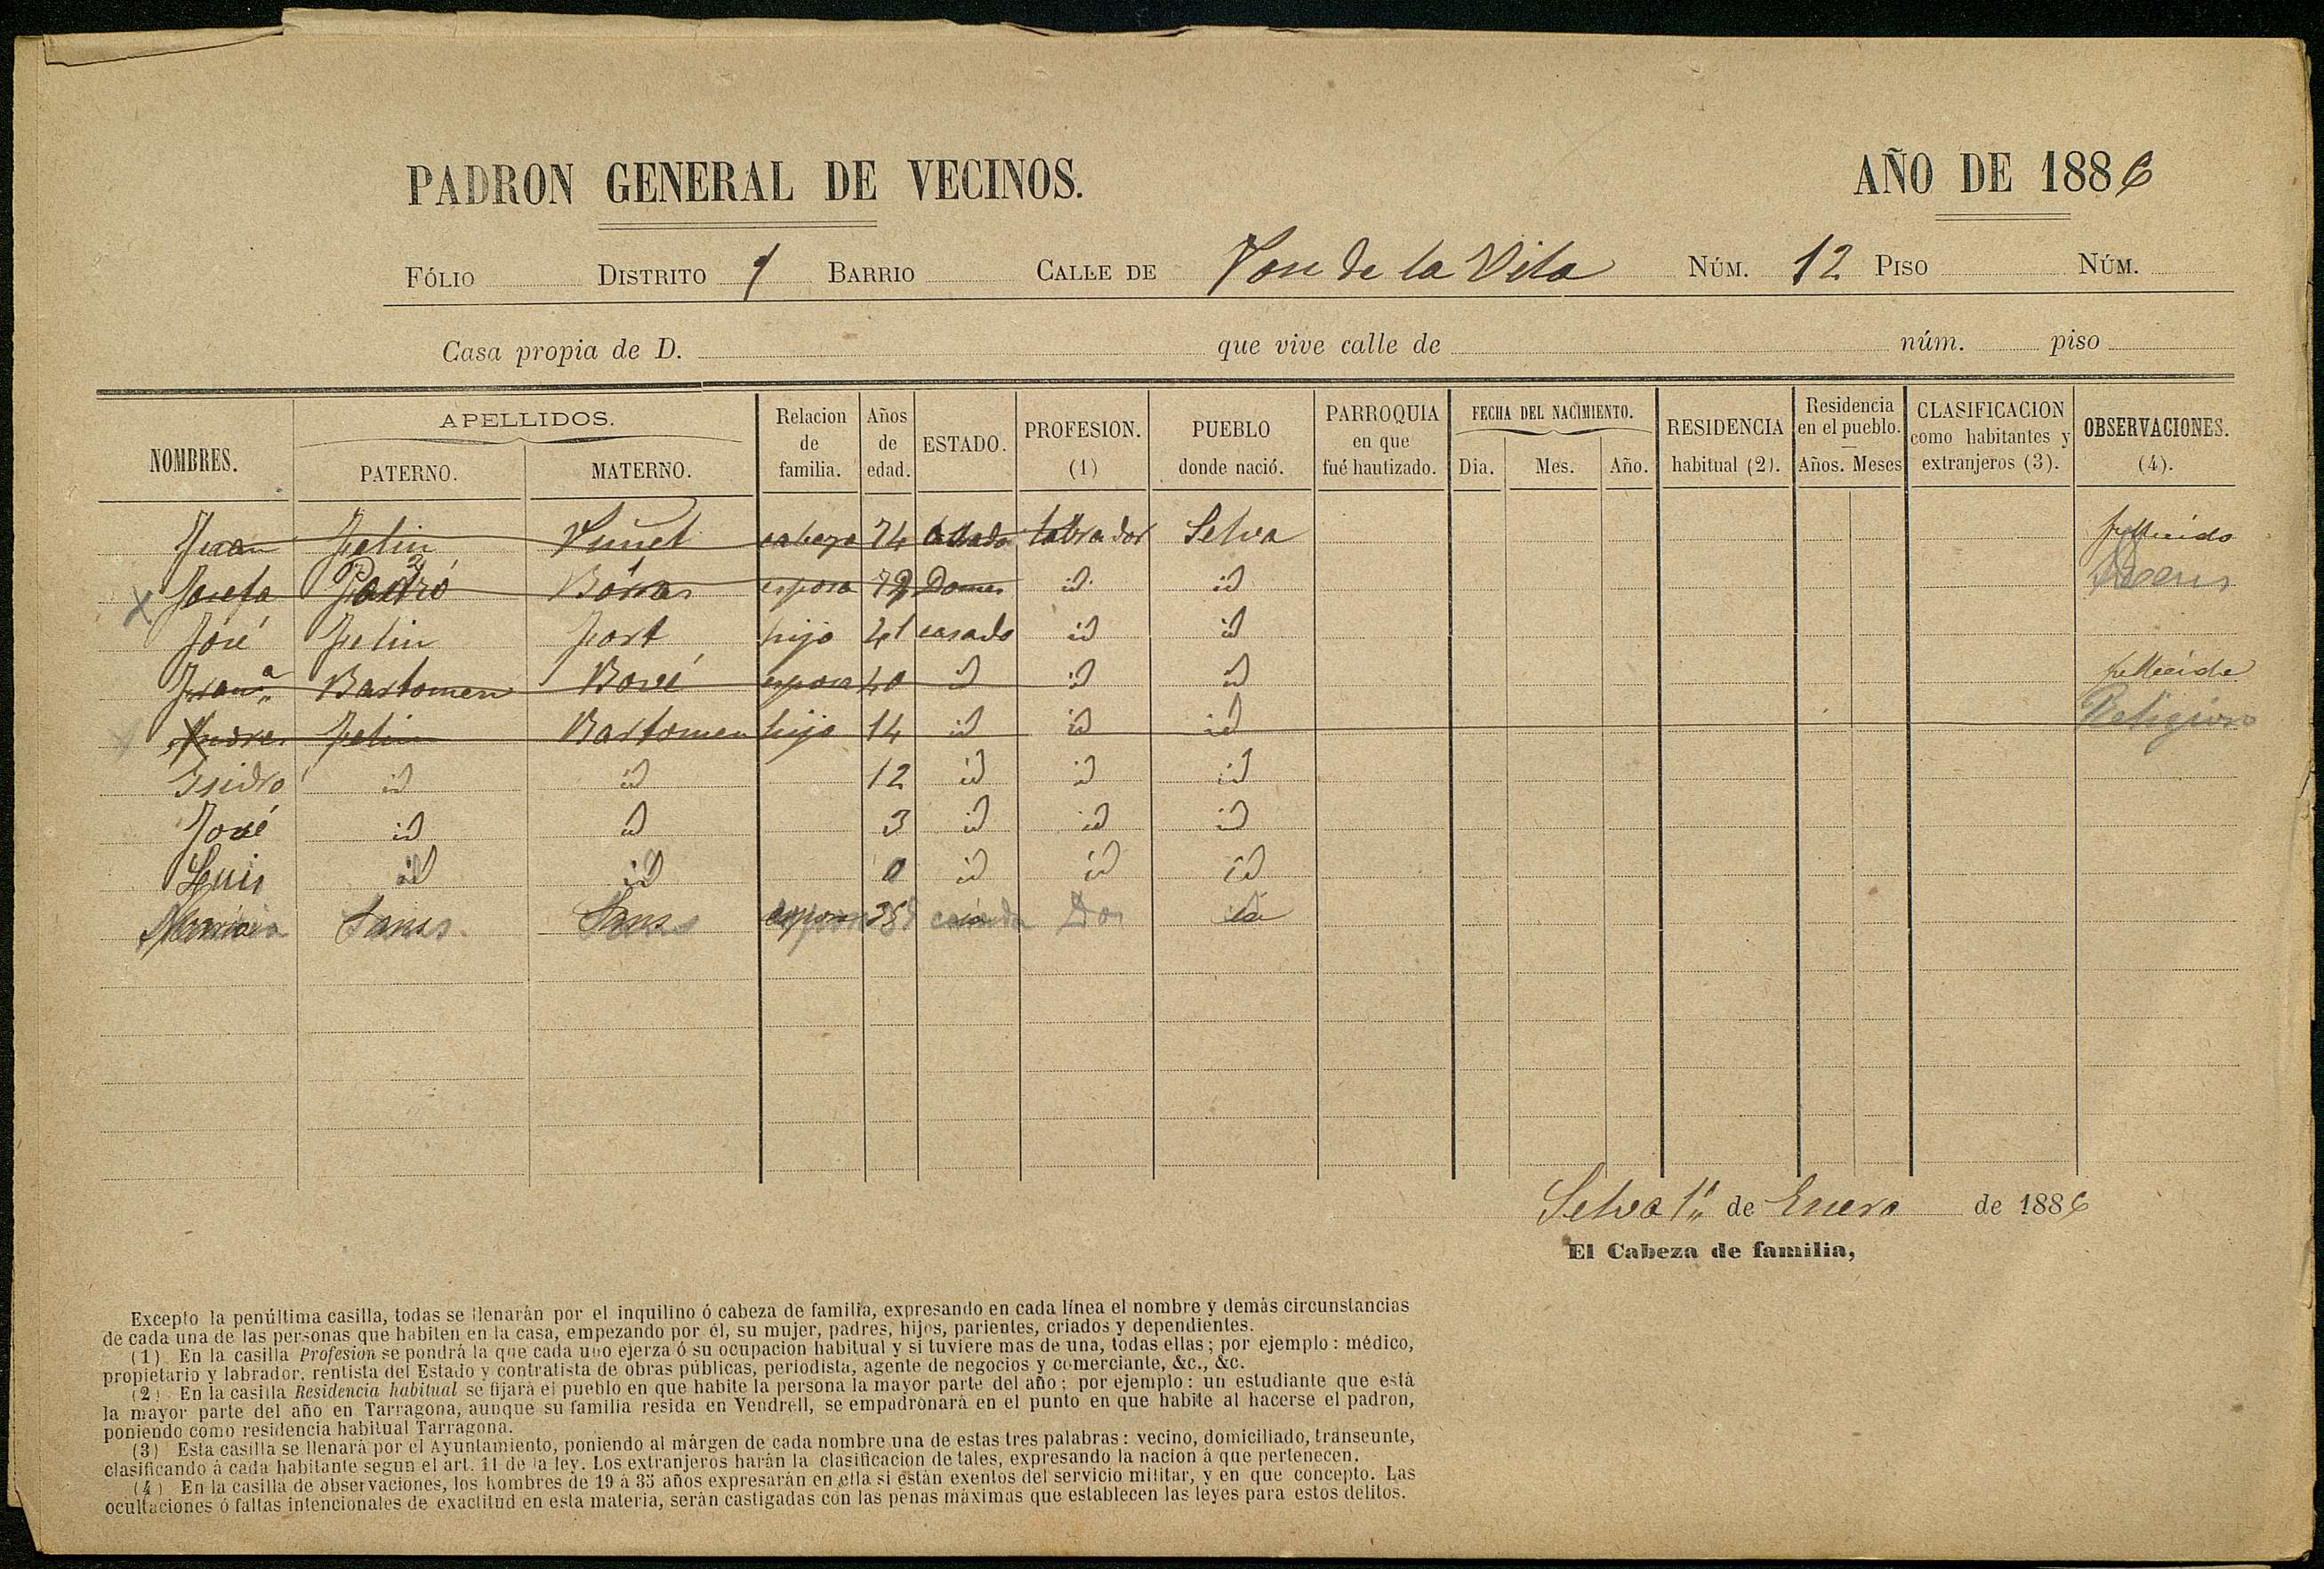 PADRON GENERAL DE VECINOS. AÑO DE 1886
FÓLIO DISTRITO 1 BARRIO CALLE DE de la Vila NÚM. 12 PISO NÚM.
Casa propia de D. que vive calle de núm. piso
NOMBRES. APELLIDOS. PATERNO. MATERNO. Relacion de familia. Años de edad. ESTADO. PROFESION. (1) PUEBLO donde nació. PARROQUIA en que fué bautizado. FECHA DEL NACIMIENTO. Dia. Mes. Año. RESIDENCIA habitual (2). Residencia en el pueblo. Años. Meses CLASIFICACION como habitantes y extranjeros (3). OBSERVACIONES. (4).
Juan cabeza 74 labrador Selva fallecido
Josefa Padró Borras esposa id id
José Fort hijo 41 casado id id
Bartomeu Bové esposa 40 id id id fallecida
Andres Bartomeu hijo 14 id id id Religioso
Isidro id id 12 id id id
José id id 3 id id id
Luis id id 0 id id id
Maria Sans Sans esposa
Selva 1º de Enero de 1886
El Cabeza de familia,
Excepto la penúltima casilla, todas se llenarán por el inquilino ó cabeza de familia, expresando en cada línea el nombre y demás circunstancias
de cada una de las personas que habiten en la casa, empezando por él, su mujer, padres, hijos, parientes, criados y dependientes.
(1) En la casilla Profesion se pondrá la que cada uno ejerza ó su ocupacion habitual y si tuviere mas de una, todas ellas; por ejemplo: médico,
propietario y labrador, rentista del Estado y contratista de obras públicas, periodista, agente de negocios y comerciante, &c., &c.
(2) En la casilla Residencia habitual se fijará el pueblo en que habite la persona la mayor parte del año; por ejemplo: un estudiante que está
la mayor parte del año en Tarragona, aunque su familia resida en Vendrell, se empadronará en el punto en que habite al hacerse el padron,
poniendo como residencia habitual Tarragona.
(3) Esta casilla se llenará por el Ayuntamiento, poniendo al márgen de cada nombre una de estas tres palabras: vecino, domiciliado, transeunte,
clasificando á cada habitante segun el art. 11 de la ley. Los extranjeros harán la clasificacion de tales, expresando la nacion á que pertenecen.
(4) En la casilla de observaciones, los hombres de 19 á 35 años expresarán en ella si están exentos del servicio militar, y en que concepto. Las
ocultaciones ó faltas intencionales de exactitud en esta materia, serán castigadas con las penas máximas que establecen las leyes para estos delitos.